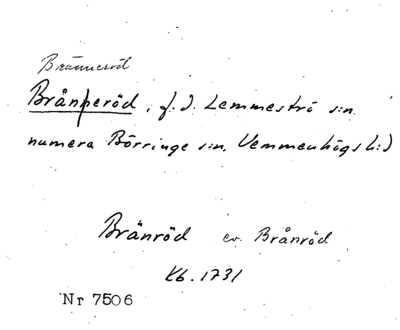 Bränneröd
Brän​neröd, f.d. Lemmeströ s:n
numera Börringe s:n, Vemmenhögs h:d
Bränröd ev. Brånröd
Kb. 1731
Nr 7506